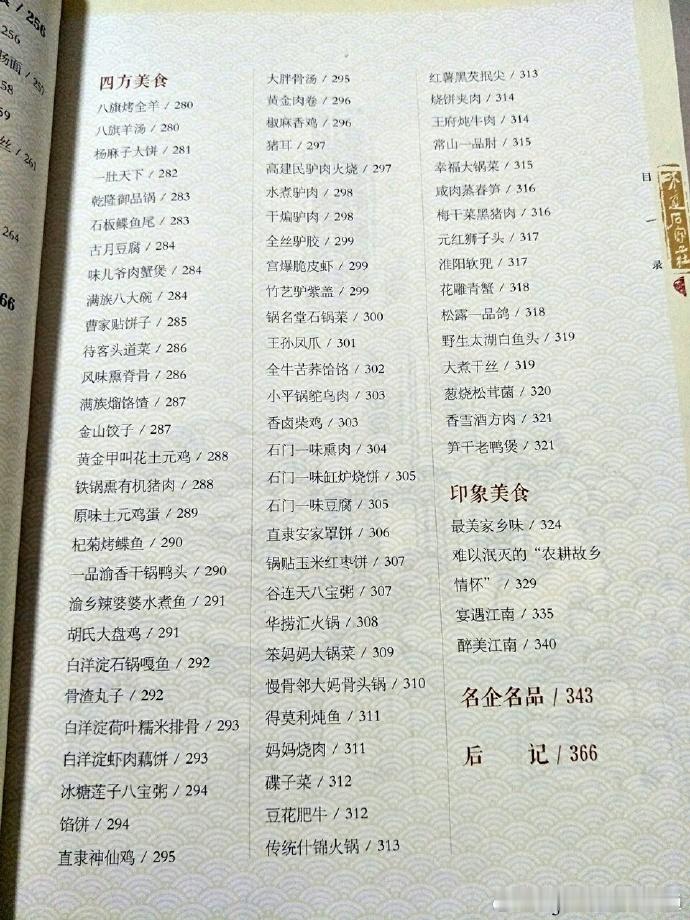 256
256
肠面 / 257
58
59
丝 / 261
264
66
四方美食
八旗烤全羊 / 280
八旗羊汤 / 280
杨麻子大饼 / 281
一肚天下 / 282
乾隆御品锅 / 283
石板鲽鱼尾 / 283
古月豆腐 / 284
味儿爷肉蟹煲 / 284
满族八大碗 / 284
曹家贴饼子 / 285
待客头道菜 / 286
风味熏脊骨 / 286
满族熘饹馇 / 287
金山饺子 / 287
黄金甲叫花土元鸡 / 288
铁锅熏有机猪肉 / 288
原味土元鸡蛋 / 289
杞菊烤鲽鱼 / 290
一品渝香干锅鸭头 / 290
渝乡辣婆婆水煮鱼 / 291
胡氏大盘鸡 / 291
白洋淀石锅嘎鱼 / 292
骨渣丸子 / 292
白洋淀荷叶糯米排骨 / 293
白洋淀虾肉藕饼 / 293
冰糖莲子八宝粥 / 294
馅饼 / 294
直隶神仙鸡 / 295
大胖骨汤 / 295
黄金肉卷 / 296
椒麻香鸡 / 296
猪耳 / 297
高建民驴肉火烧 / 297
水煮驴肉 / 298
干煸驴肉 / 298
全丝驴胶 / 299
宫爆脆皮虾 / 299
竹艺驴紫盖 / 299
锅名堂石锅菜 / 300
王孙凤爪 / 301
全牛苦荞饸饹 / 302
小平锅鸵鸟肉 / 303
香卤柴鸡 / 303
石门一味熏肉 / 304
石门一味缸炉烧饼 / 305
石门一味豆腐 / 305
直隶安家罩饼 / 306
锅贴玉米红枣饼 / 307
谷连天八宝粥 / 307
华捞汇火锅 / 308
笨妈妈大锅菜 / 309
慢骨邻大妈骨头锅 / 310
得莫利炖鱼 / 311
妈妈烧肉 / 311
碟子菜 / 312
豆花肥牛 / 312
传统什锦火锅 / 313
红薯黑芡抿尖 / 313
烧饼夹肉 / 314
王府炖牛肉 / 314
常山一品肘 / 315
幸福大锅菜 / 315
咸肉蒸春笋 / 316
梅干菜黑猪肉 / 316
元红狮子头 / 317
淮阳软兜 / 317
花雕青蟹 / 318
松露一品鸽 / 318
野生太湖白鱼头 / 319
大煮干丝 / 319
葱烧松茸菌 / 320
香雪酒方肉 / 321
笋干老鸭煲 / 321
印象美食
最美家乡味 / 324
难以泯灭的“农耕故乡
情怀” / 329
宴遇江南 / 335
醉美江南 / 340
名企名品 / 343
后 记 / 366
目
录